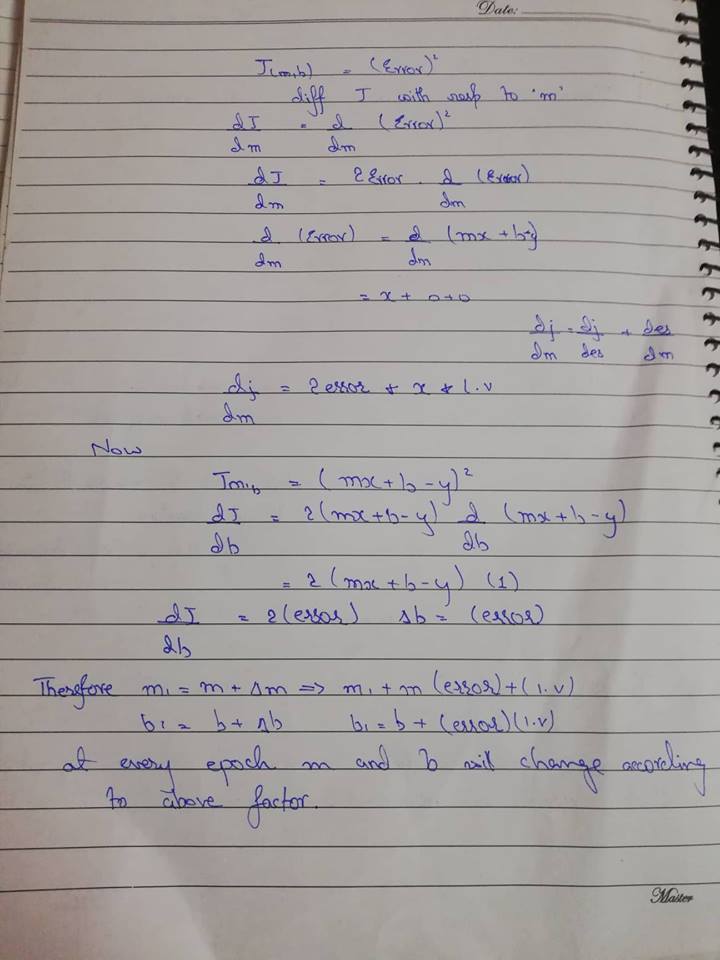 Date:
J(m,b) = (Error)²
diff J with resp to 'm'
dJ/dm = d/dm (Error)²
dJ/dm = 2 Error . d/dm (Error)
d/dm (Error) = d/dm (mx + b-y)
= x + 0+0
dj/dm = dj/des * des/dm
dj/dm = 2 error * x * l.v
Now
Jm,b = (mx+b-y)²
dJ/db = 2(mx+b-y) d/db (mx+b-y)
= 2(mx+b-y) (1)
dJ/db = 2(error) Δb = (error)
Therefore m₁ = m + Δm => m₁ + m (error)+(l.v)
b₁ = b + Δb b₁ = b + (error)(l.v)
at every epoch m and b will change according
to above factor.
Master